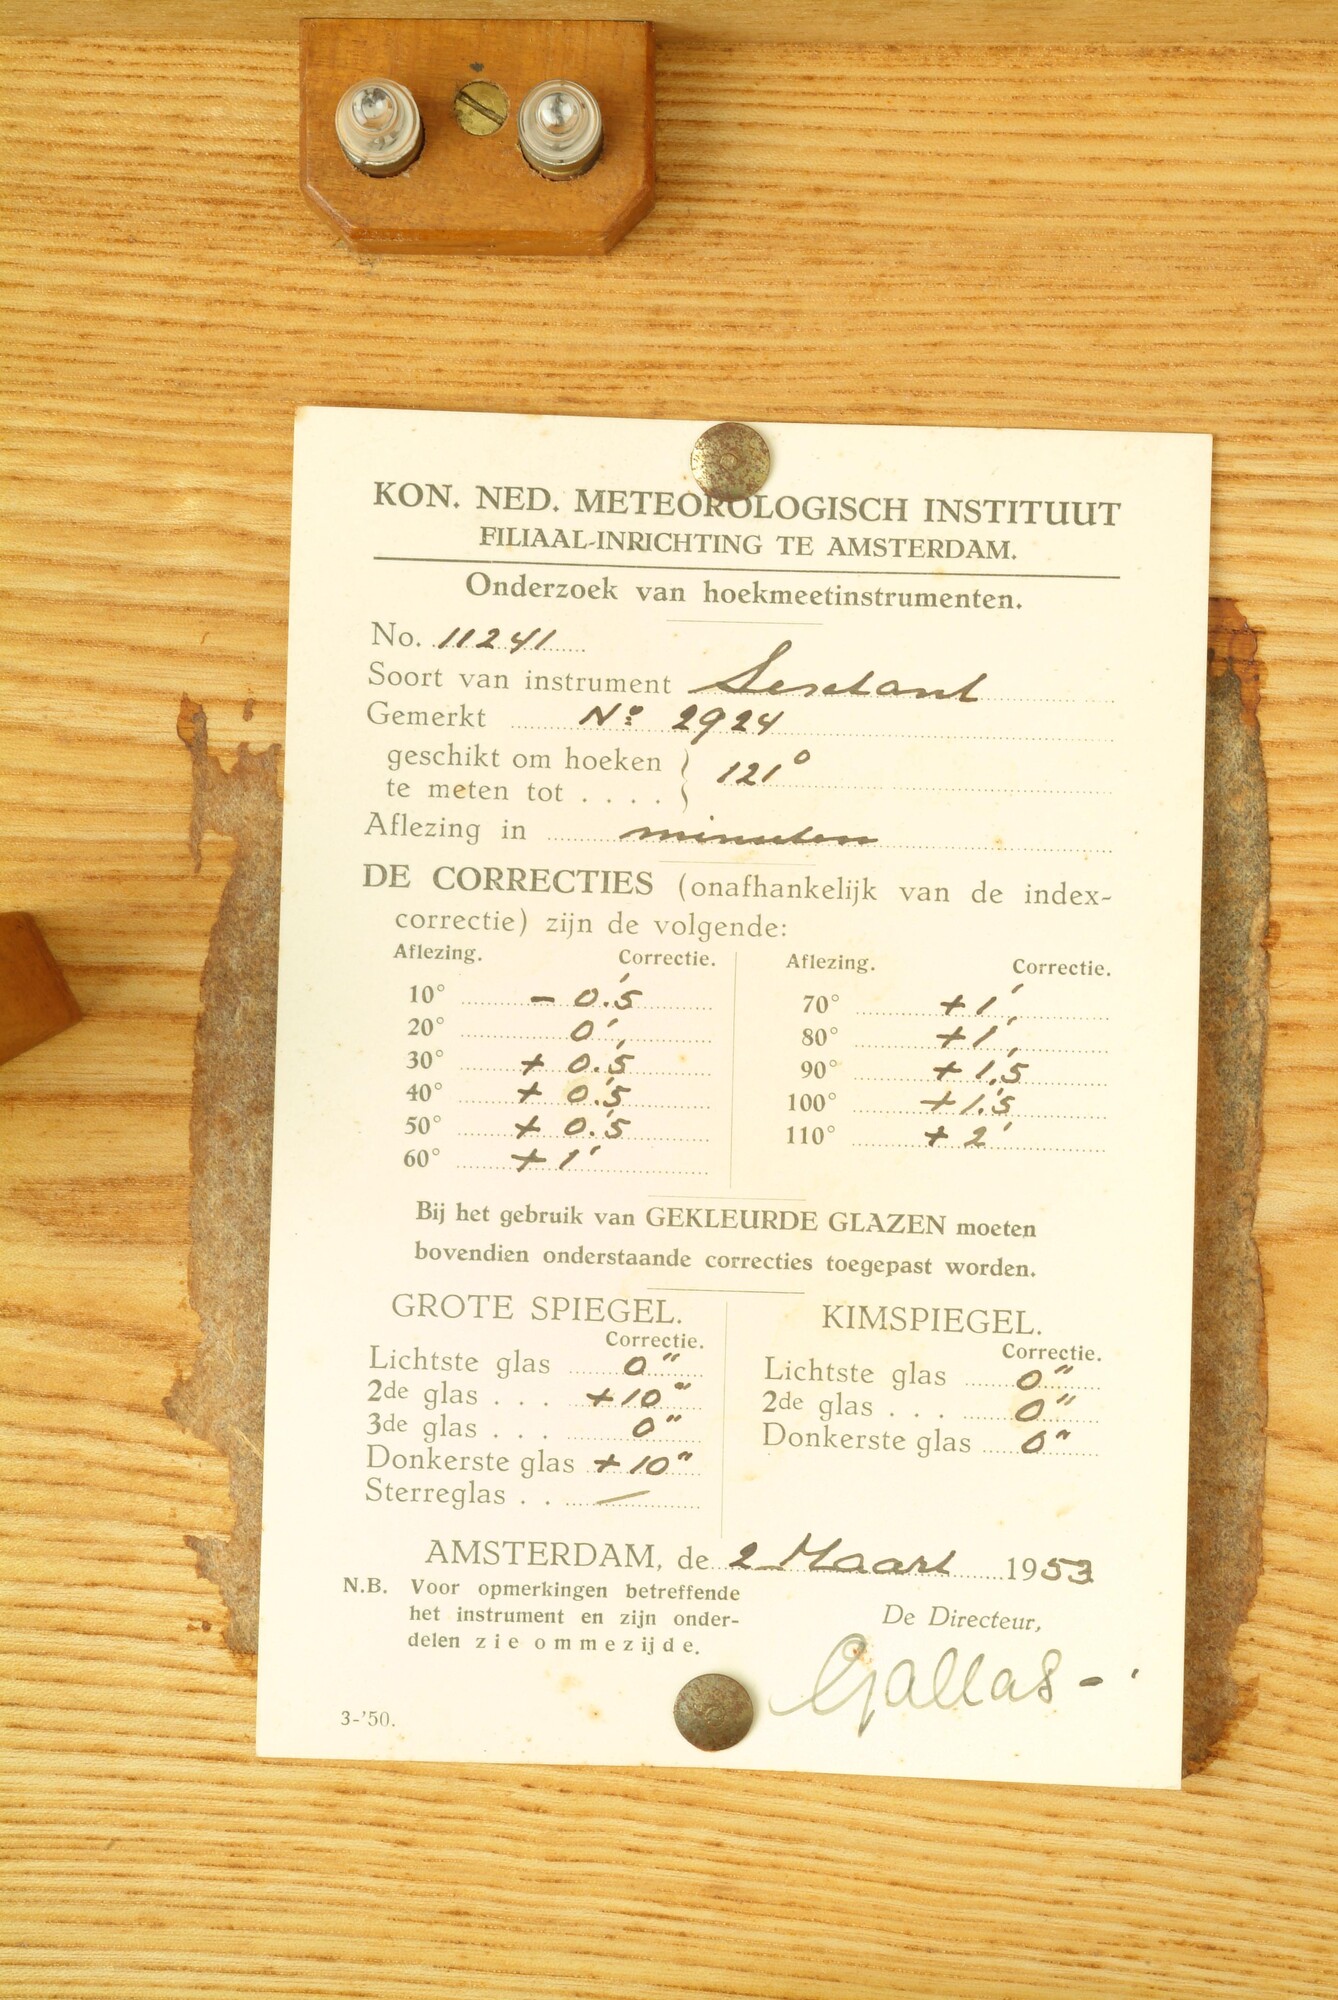 KON. NED. METEOROLOGISCH INSTITUUT
FILIAAL-INRICHTING TE AMSTERDAM.
Onderzoek van hoekmeetinstrumenten.
No. 11241
Soort van instrument Sextant
Gemerkt No 2924
geschikt om hoeken
te meten tot . . . . } 121°
Aflezing in minuten
DE CORRECTIES (onafhankelijk van de index-
correctie) zijn de volgende:
Aflezing. Correctie.
10° - 0.'5
20° 0'
30° + 0.'5
40° + 0.'5
50° + 0.'5
60° + 1'
Aflezing. Correctie.
70° +1'
80° +1'
90° +1.'5
100° +1.'5
110° +2'
Bij het gebruik van GEKLEURDE GLAZEN moeten
bovendien onderstaande correcties toegepast worden.
GROTE SPIEGEL.
Correctie.
Lichtste glas 0"
2de glas . . . +10"
3de glas . . . 0"
Donkerste glas +10"
Sterreglas . . —
KIMSPIEGEL.
Correctie.
Lichtste glas 0"
2de glas . . . 0"
Donkerste glas 0"
AMSTERDAM, de 2 Maart 1953
N.B. Voor opmerkingen betreffende
het instrument en zijn onder-
delen zie ommezijde.
De Directeur,
Gallas
3-'50.